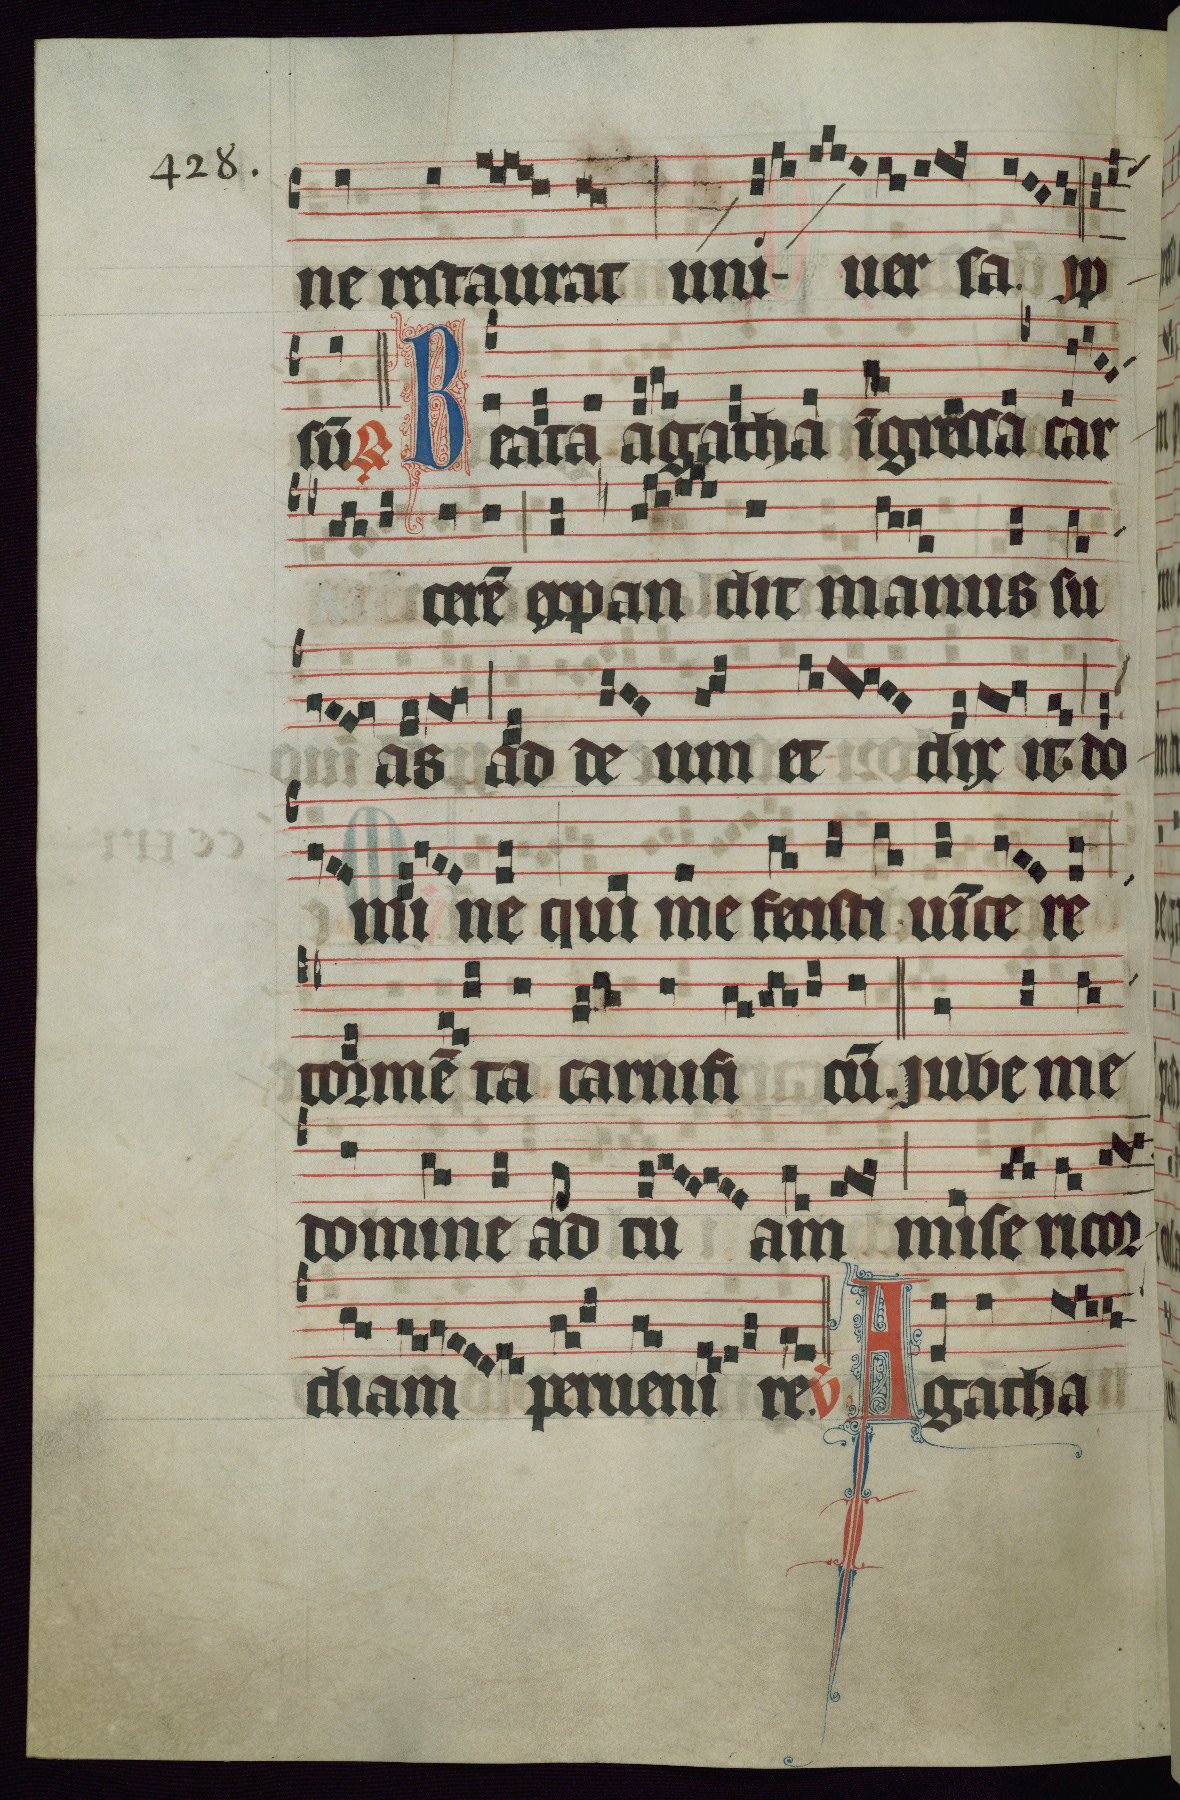 428.
ne restaurat uni- uer sa. yp
sū ℟ Beata agatha īgressa car
cerē expan dit manus su
as ad de um et dix it do
mi ne qui me fecisti uīce re
tormē ta carnifi cū. jube me
domine ad tu am mise ricor
diam perueni re. ℣ Agatha